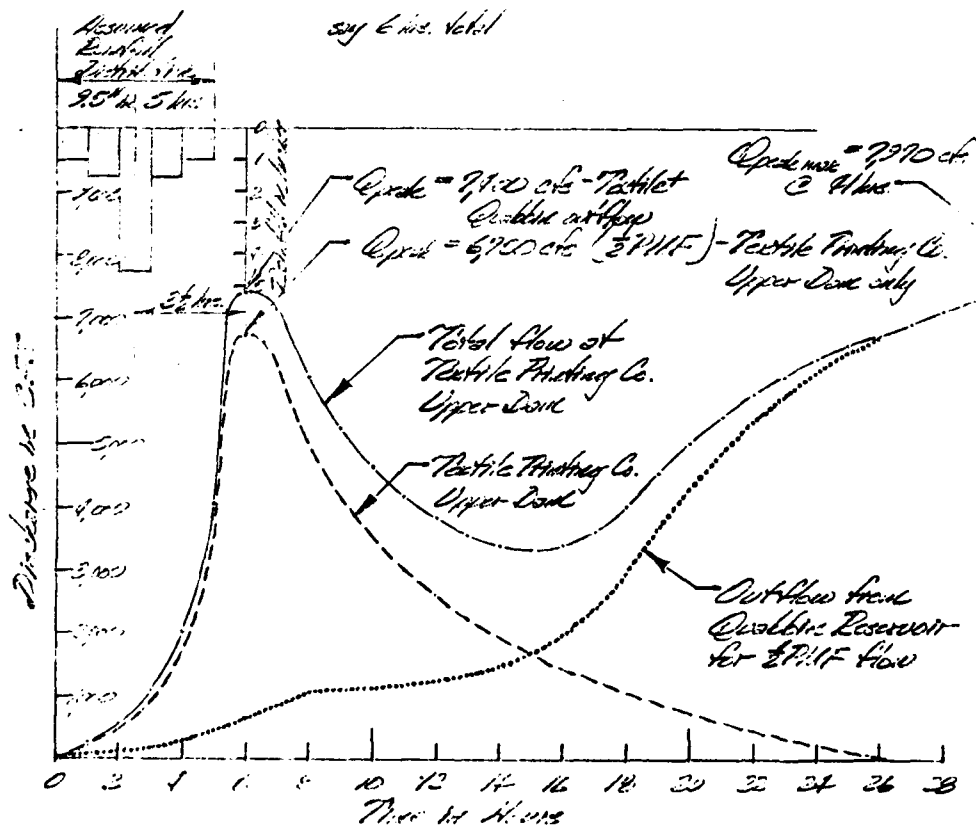 Assumed
Rainfall
Distribution
9.5" in 5 hrs.
say 6 hrs. total
0
1
2
3
5
Qpeak = 7,400 cfs - Textile +
Quabbin outflow
Qpeak = 6,700 cfs (½ PMF) - Textile Printing Co.
Upper Dam only
Qpeak max = 7,970 cfs
@ hrs
2½ hrs.
Total flow at
Textile Printing Co.
Upper Dam
Textile Printing Co.
Upper Dam
Outflow from
Quabbin Reservoir
for ½ PMF flow
Discharge in
9,000
8,000
7,000
6,000
5,000
4,000
3,000
2,000
1,000
0 2 4 6 8 10 12 14 16 18 20 22 24 26 28
Time in Hours